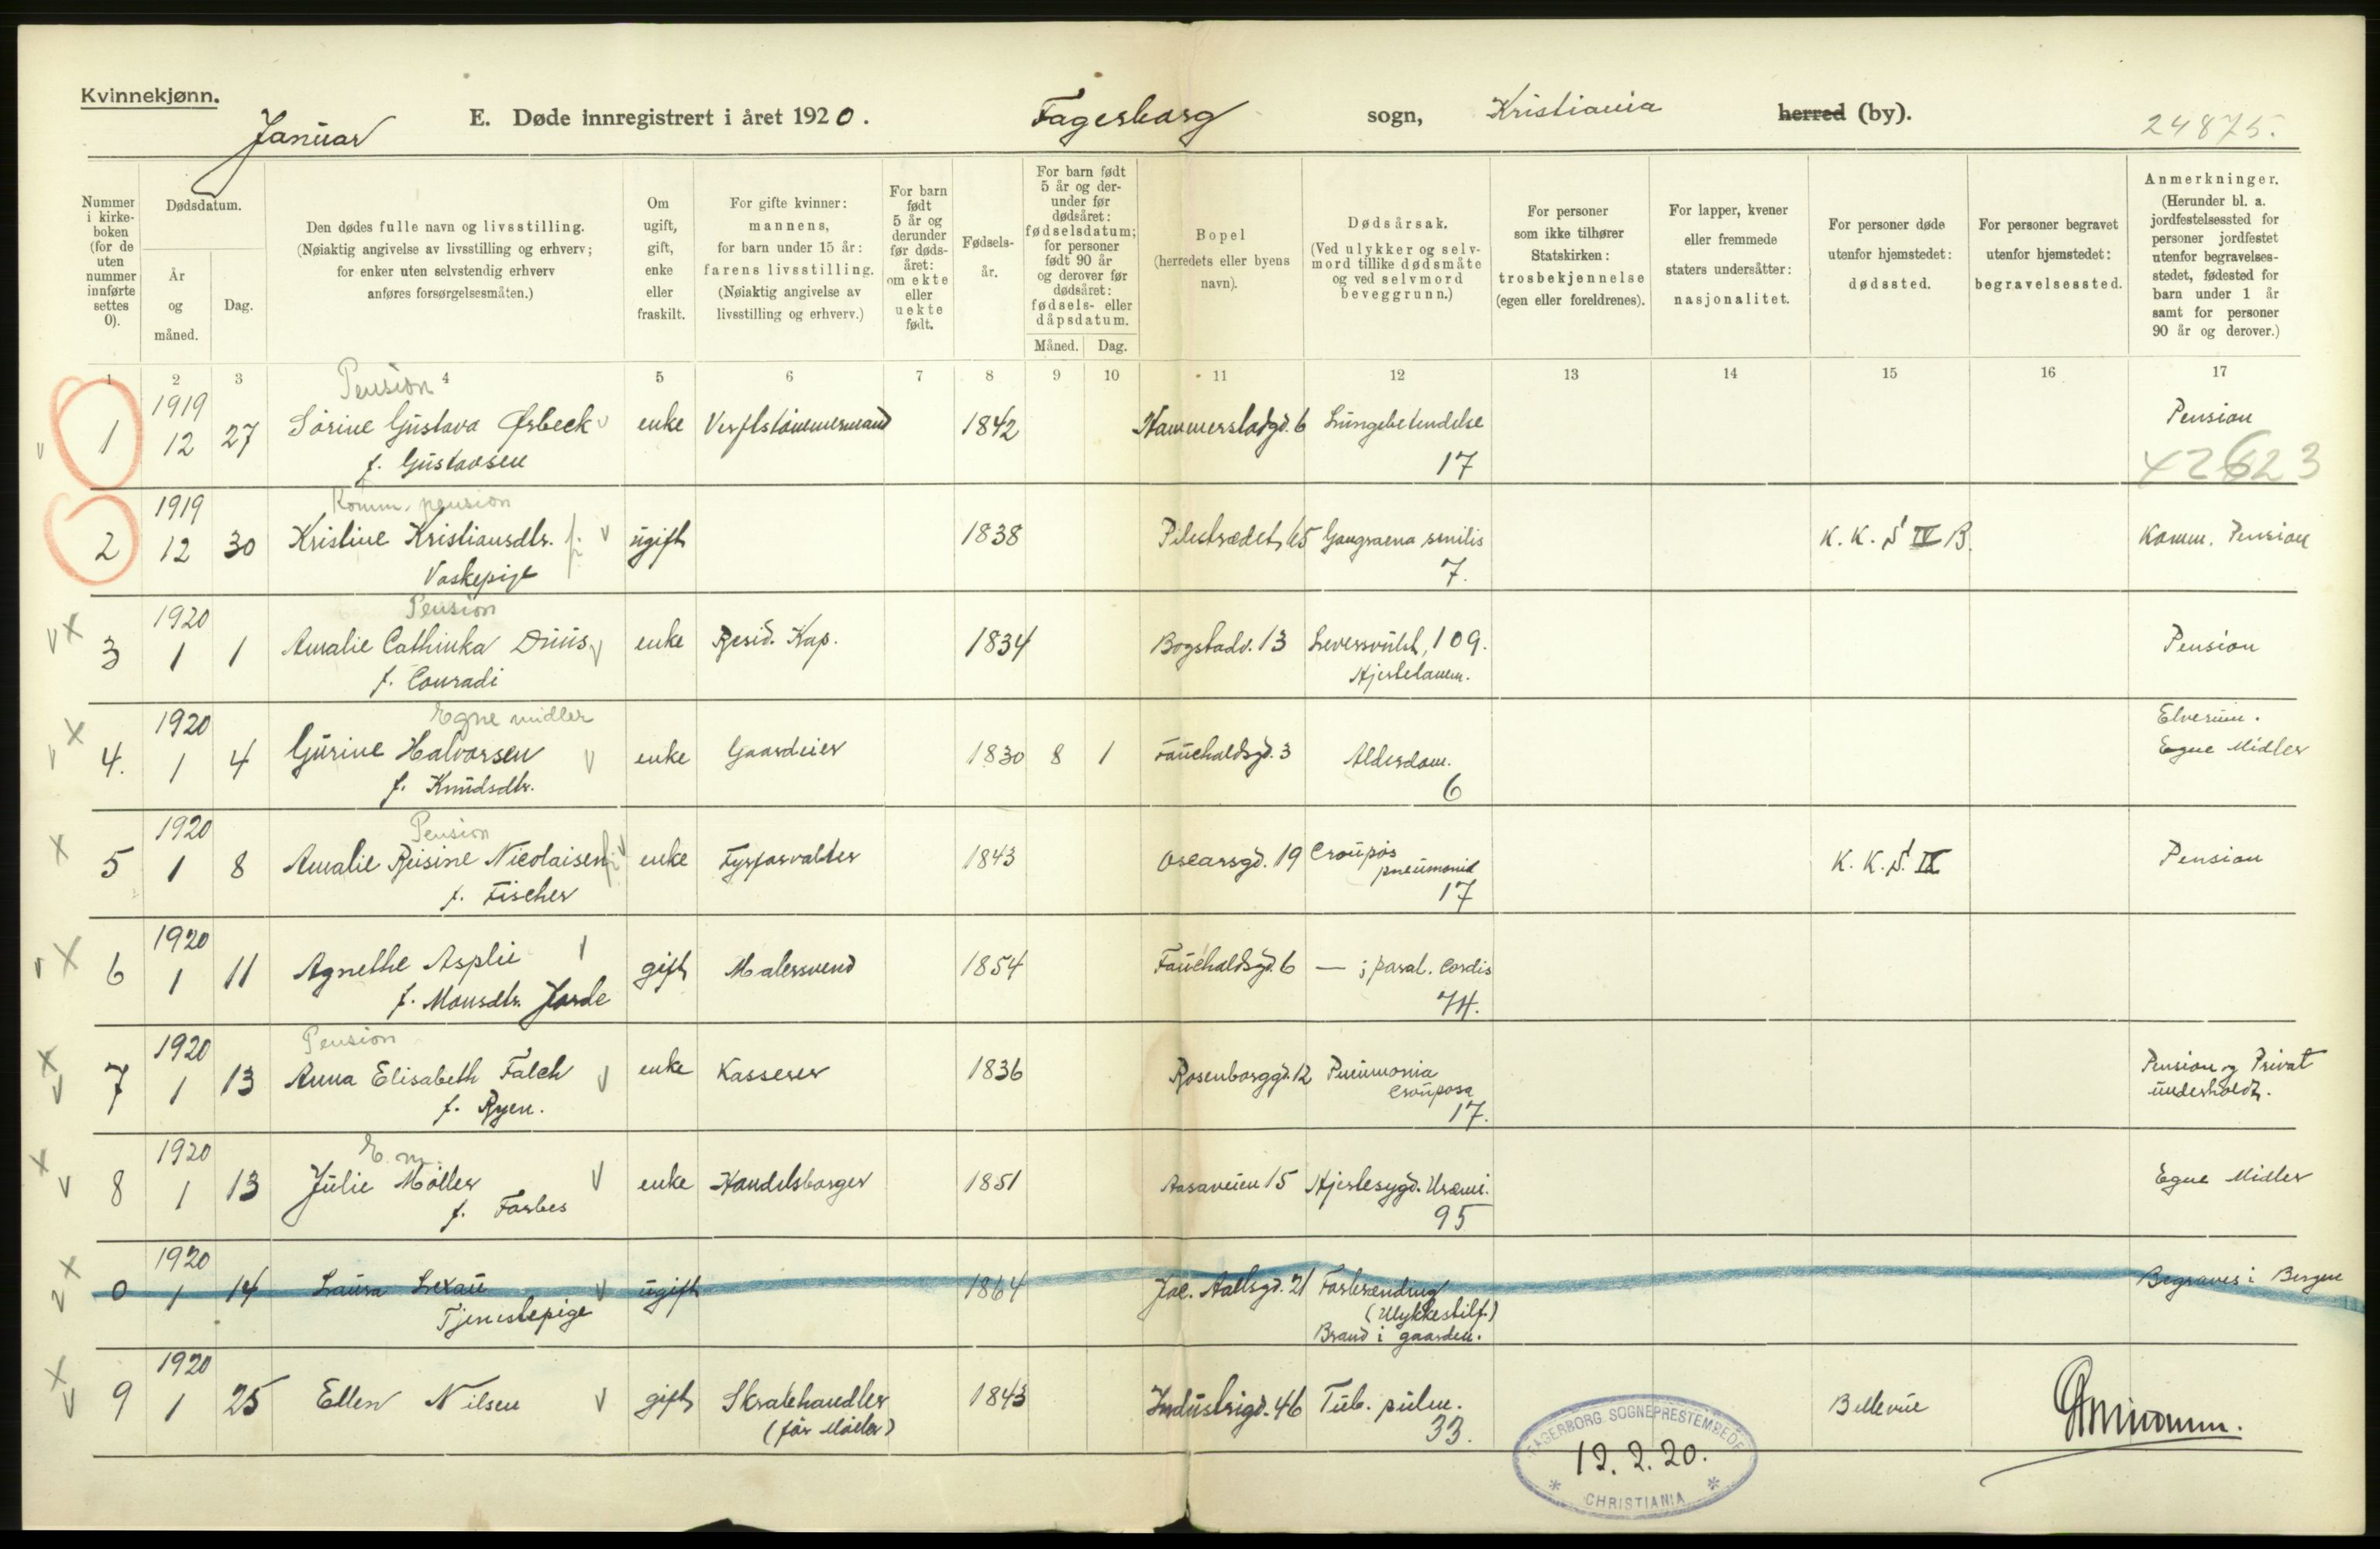 Kvinnekjønn.
Januar
E. Døde innregistrert i året 1920.
Fagerborg sogn, Kristiania herred (by).
24875.
Nummer i kirkeboken (for de uten nummer innførte settes 0).
Dødsdatum.
År og måned.
Dag.
Den dødes fulle navn og livsstilling.
(Nøiaktig angivelse av livsstilling og erhverv; for enker uten selvstendig erhverv anføres forsørgelsesmåten.)
Om ugift, gift, enke eller fraskilt.
For gifte kvinner: mannens, for barn under 15 år: farens livsstilling.
(Nøiaktig angivelse av livsstilling og erhverv.)
For barn født 5 år og derunder før dødsåret: om ekte eller uekte født.
Fødselsår.
For barn født 5 år og derunder før dødsåret: fødselsdatum; for personer født 90 år og derover før dødsåret: fødsels- eller dåpsdatum.
Måned. Dag.
Bopel (herredets eller byens navn).
Dødsårsak.
(Ved ulykker og selvmord tillike dødsmåte og ved selvmord beveggrunn.)
For personer som ikke tilhører Statskirken: trosbekjennelse (egen eller foreldrenes).
For lapper, kvener eller fremmede staters undersåtter: nasjonalitet.
For personer døde utenfor hjemstedet: dødssted.
For personer begravet utenfor hjemstedet: begravelsessted.
Anmerkninger.
(Herunder bl. a. jordfestelsessted for personer jordfestet utenfor begravelsesstedet, fødested for barn under 1 år samt for personer 90 år og derover.)
1 2 3 4 5 6 7 8 9 10 11 12 13 14 15 16 17
Pension
1 1919 12 27 Sørine Gustava Ørbeck v enke Verftstømmermand 1842 Hammerstadgd. 6 Lungebetendelse Pension
f. Gustavsen 17 42623
Komm. pension
2 1919 12 30 Kristine Kristiansdtr. v ugift 1838 Pilestrædet 65 Gangraena senilis K. K. S IV B. Komm. Pension
Vaskepige 7.
Pension
3 1920 1 1 Amalie Cathinka Duus v enke Resid. Kap. 1834 Bogstadv. 13 Leversvulst, 109. Pension
f. Conradi Hjertelamm.
Egne midler Elverum.
4. 1920 1 4 Gurine Halvorsen v enke Gaardeier 1830 8 1 Fauchaldsgd. 3 Alderdom. Egne Midler
f. Knudsdtr. 6
Pension
5 1920 1 8 Amalie Risine Nicolaisen v enke Fyrforvalter 1843 Oscarsgd. 19 Croupøs pneumonie K. K. S. IX Pension
f. Fischer 17
6 1920 1 11 Agnethe Asplie v gift Malersvend 1854 Fauchaldsgd. 6 — ; paral. Cordis
f. Monsdtr. Jorde 74.
Pension
7 1920 1 13 Anna Elisabeth Falch v enke Kasserer 1836 Rosenborggd. 12 Pneumonia Crouposa Pension og Privat underholdt.
f. Ryen. 17.
E. m.
8 1920 1 13 Julie Møller v enke Handelsborger 1851 Aasaveien 15 Hjertesygd. Uræmi. Egne Midler
f. Forbes 95
0 1920 1 14 Laura Lexau v ugift 1864 Jac. Aallsgd. 21 Forbrænding Begraves i Bergen
Tjenestepige (Ulykkestilf.)
Brand i gaarden.
9 1920 1 25 Ellen Nilsen v gift Skraphandler 1843 Industrigd. 46 Tub. pulm. Bellevue
(før Møller) 33.
FAGERBORG SOGNEPRESTEMBEDE
12.2.20.
* CHRISTIANIA *